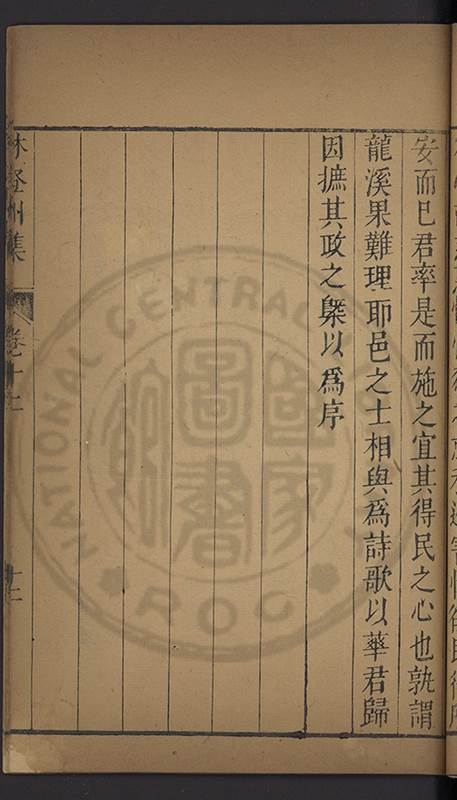 安而已君率是而施之宜其得民之心也孰謂
龍溪果難理耶邑之士相與爲詩歌以華君歸
因摭其政之槩以爲序
林登州集
卷十二
十二
國家圖書
NATIONAL CENTRAL
ROC